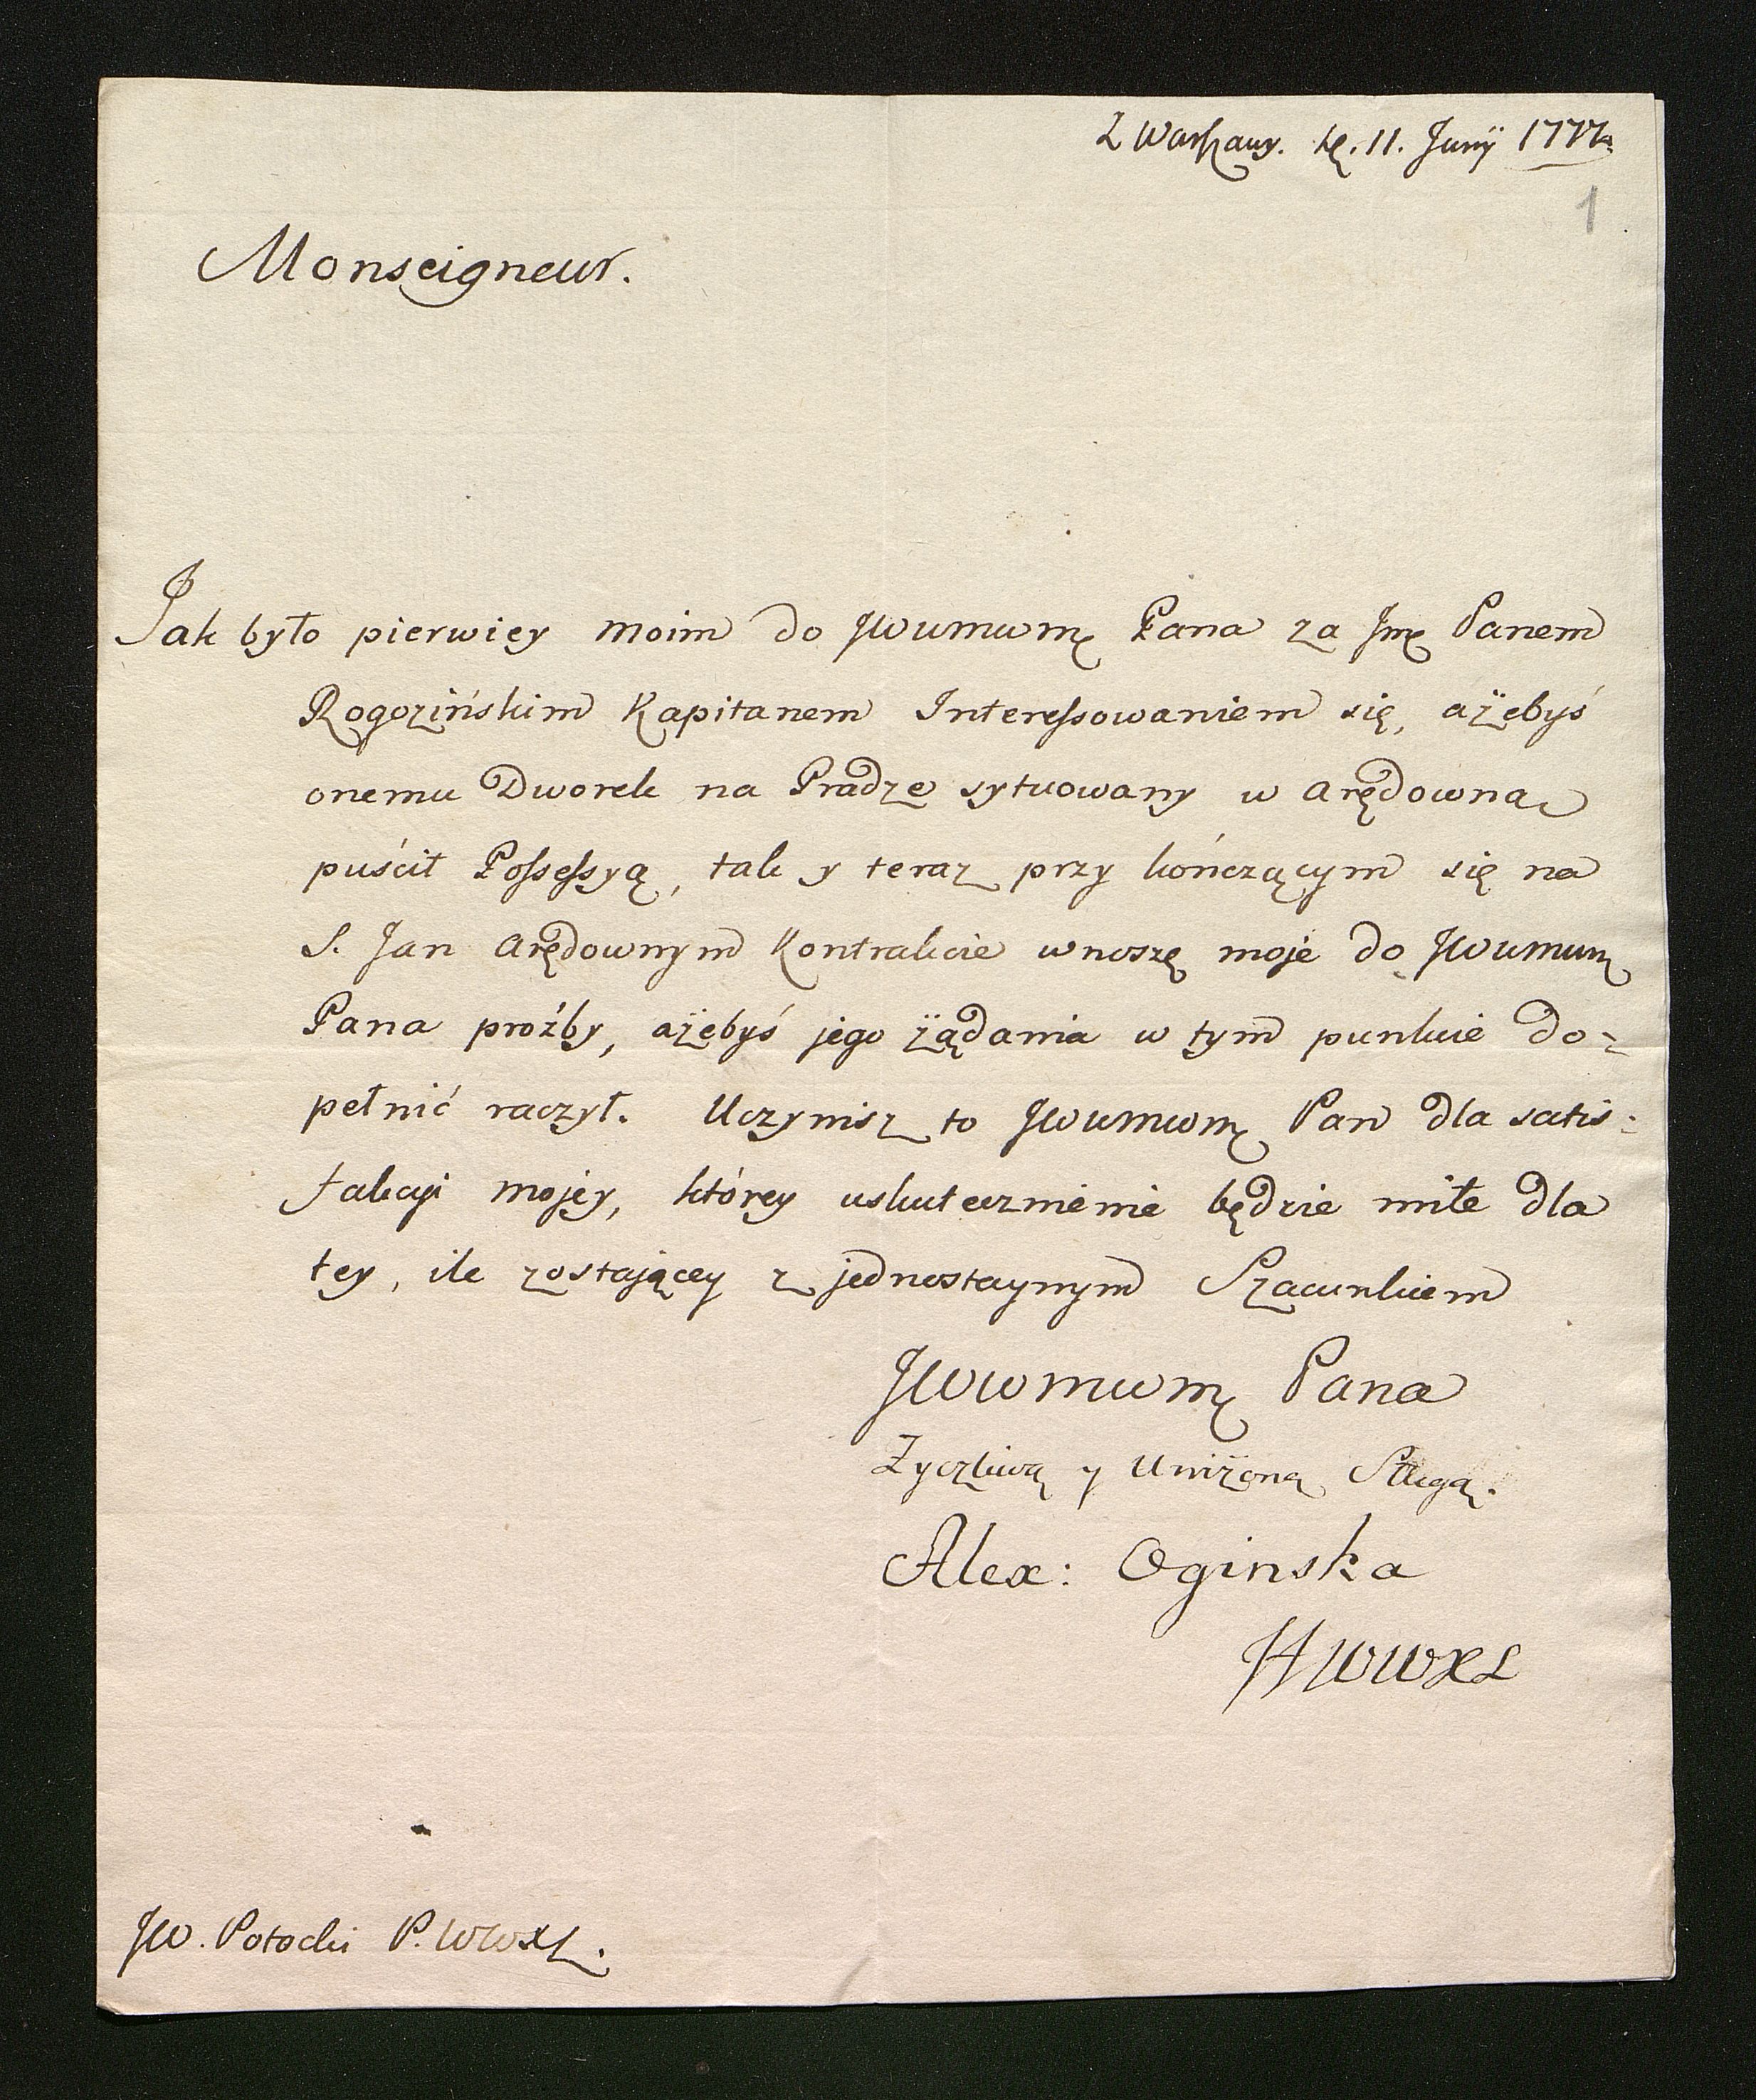 Z Warszawy. d. 11. Junÿ 1777.
1
Monseigneur.
Jak było pierwiey moim do JWWMWMę Pana za Jmę Panem
Rogozińskim Kapitanem Interessowaniem się, ażebyś
onemu Dworek na Pradze sytuowany w arędowną
puścił Possessyą, tak y teraz przy kończącym się na
S. Jan arędownym Kontrakcie wnoszę moje do JWWMWMę
Pana proźby, ażebyś jego żądania w tym punkcie do=
pełnić raczył. Uczynisz to JWWMWMę Pan dla satis=
fakcyi mojey, którey uskutecznienie będzie miłe dla
tey, ile zostającey z jednostaynym Szacunkiem
JWWMWMę Pana
Zyczliwą y Uniżoną Sługą.
Alex: Oginska
HWWXL
JW. Potocki P. WWXL.